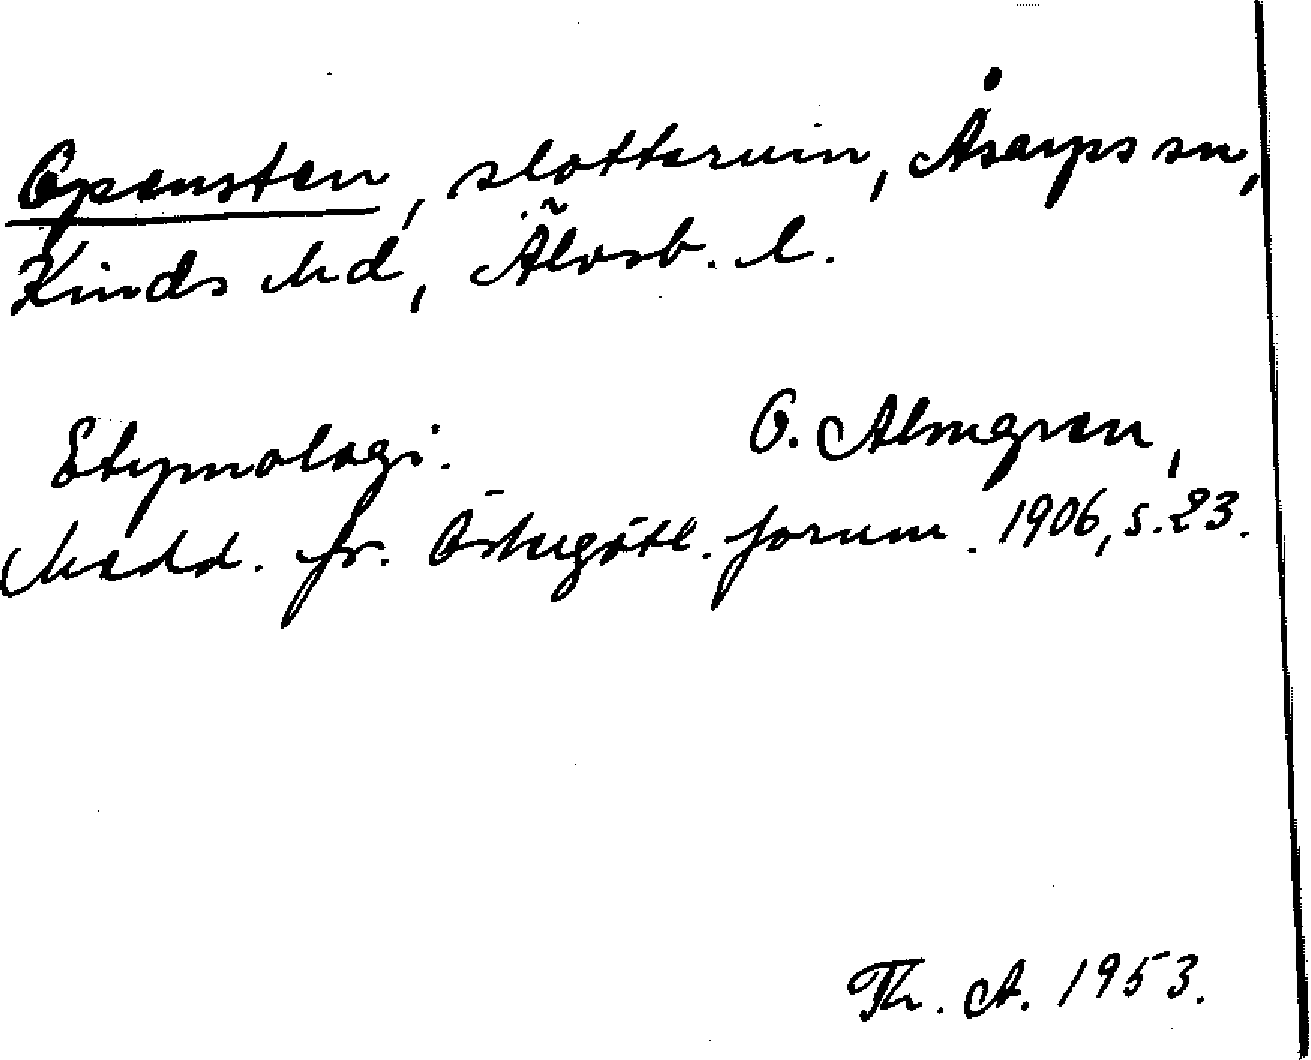 Opensten, slottsruin, Åsarps sn,
Kinds hd, Älvsb. l.
Etymologi. O. Almgren,
Medd. fr. Östergötl. fornm. 1906, s. 23.
Th. A. 1953.